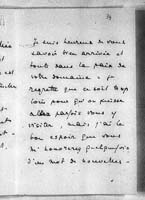 Je suis heureux de vous
savoir bien arrivée et
toute dans la paix de
votre domaine. Je
regrette que ce soit trop
loin pour qu'on puisse
aller parfois vous y
visiter, mais j'ai le
bon espoir que vous
m'honorerez quelquefois
d'un mot de nouvelles.